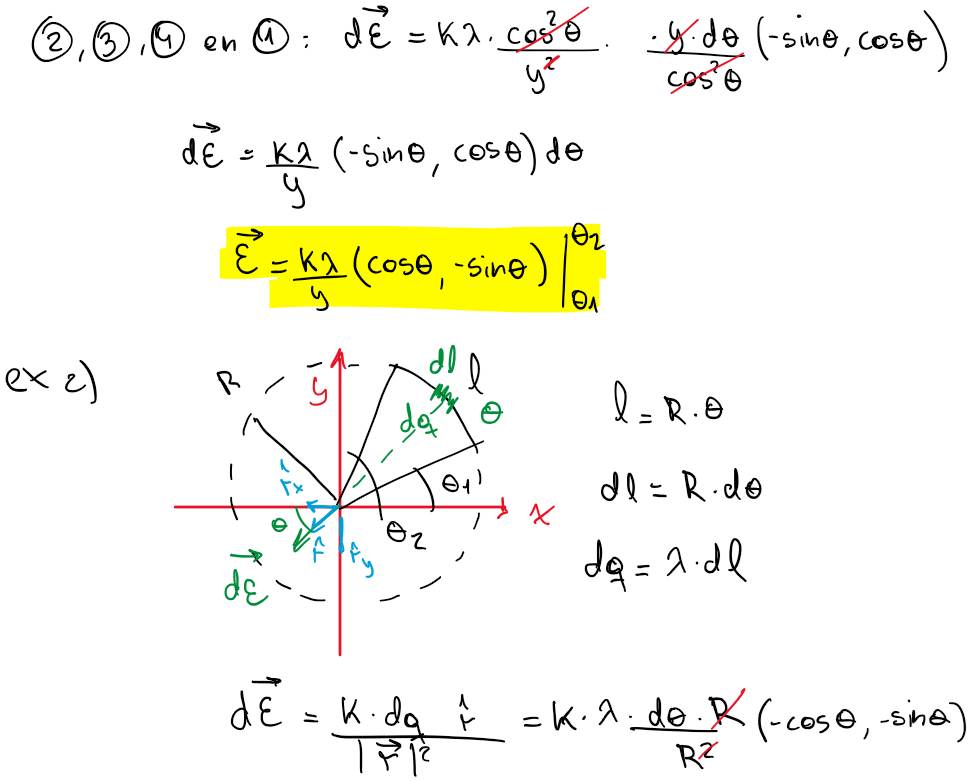 ②, ③, ④ en ①: dE⃗ = Kλ · cos²θ / y² · · y · dθ / cos²θ (-sinθ, cosθ)
dE⃗ = Kλ / y (-sinθ, cosθ) dθ
E⃗ = Kλ / y (cosθ, -sinθ) | θ2 θ1
ex 2)
R
y
dl
l
dq
θ
l = R · θ
r̂x
θ1
dl = R · dθ
x
θ
r̂
r̂y
θ2
dE⃗
dq = λ · dl
dE⃗ = K · dq r̂ / |r⃗|² = K · λ · dθ · R / R² (-cosθ, -sinθ)